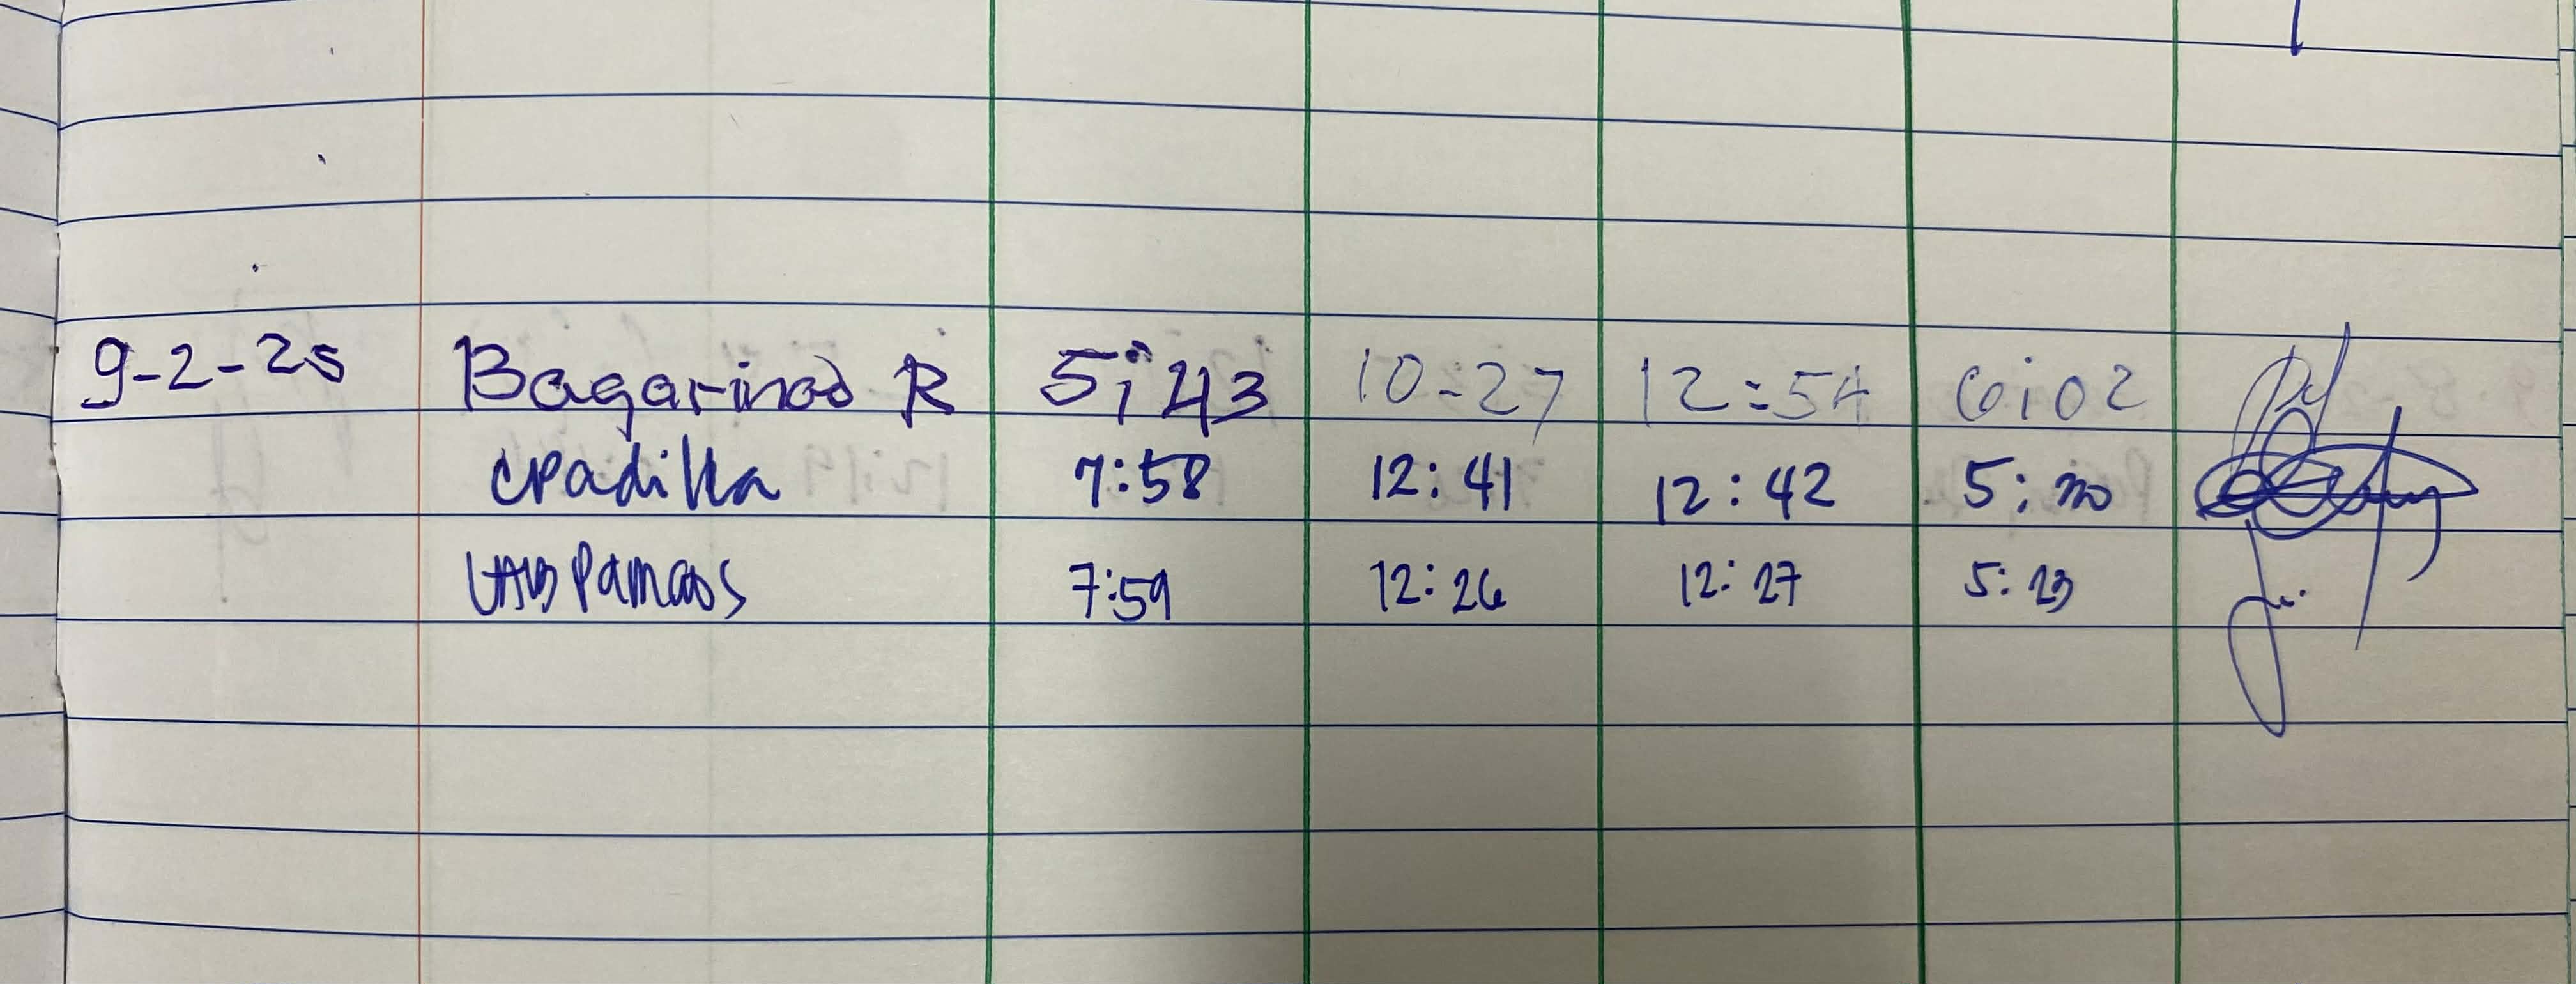 9-2-25 Bagarinao R 5:43 10-27 12:54 6:02
cpadilla 7:58 12:41 12:42 5:20
Pamaos 7:59 12:26 12:27 5:23